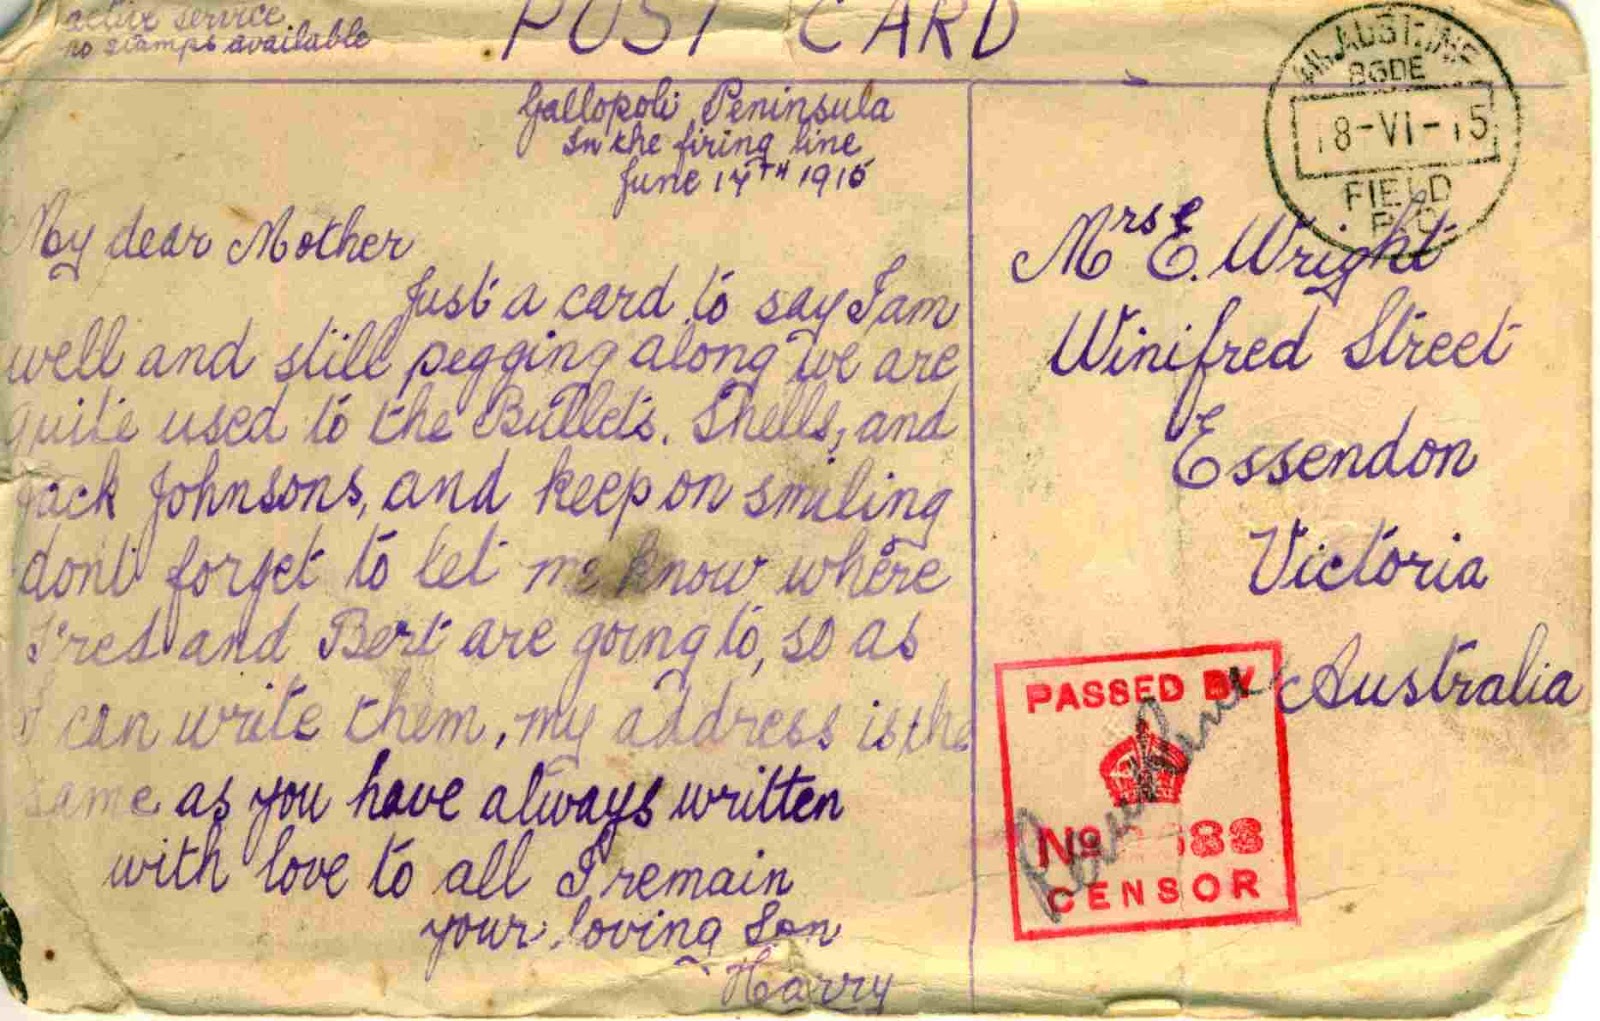 active service
no stamps available
POST CARD
Gallopoli Peninsula
In the firing line
June 14TH 1915
My dear Mother
Just a card to say I am
well and still pegging along we are
quite used to the Bullets. Shells, and
Jack Johnsons, and keep on smiling
dont forget to let me know where
Fred and Bert are going to, so as
I can write them, my address is the
same as you have always written
with love to all I remain
your loving Son
Harry
BGDE
18-VI-15
FIELD
P.O
Mrs E. Wright
Winifred Street
Essendon
Victoria
Australia
PASSED BY
No 88
CENSOR